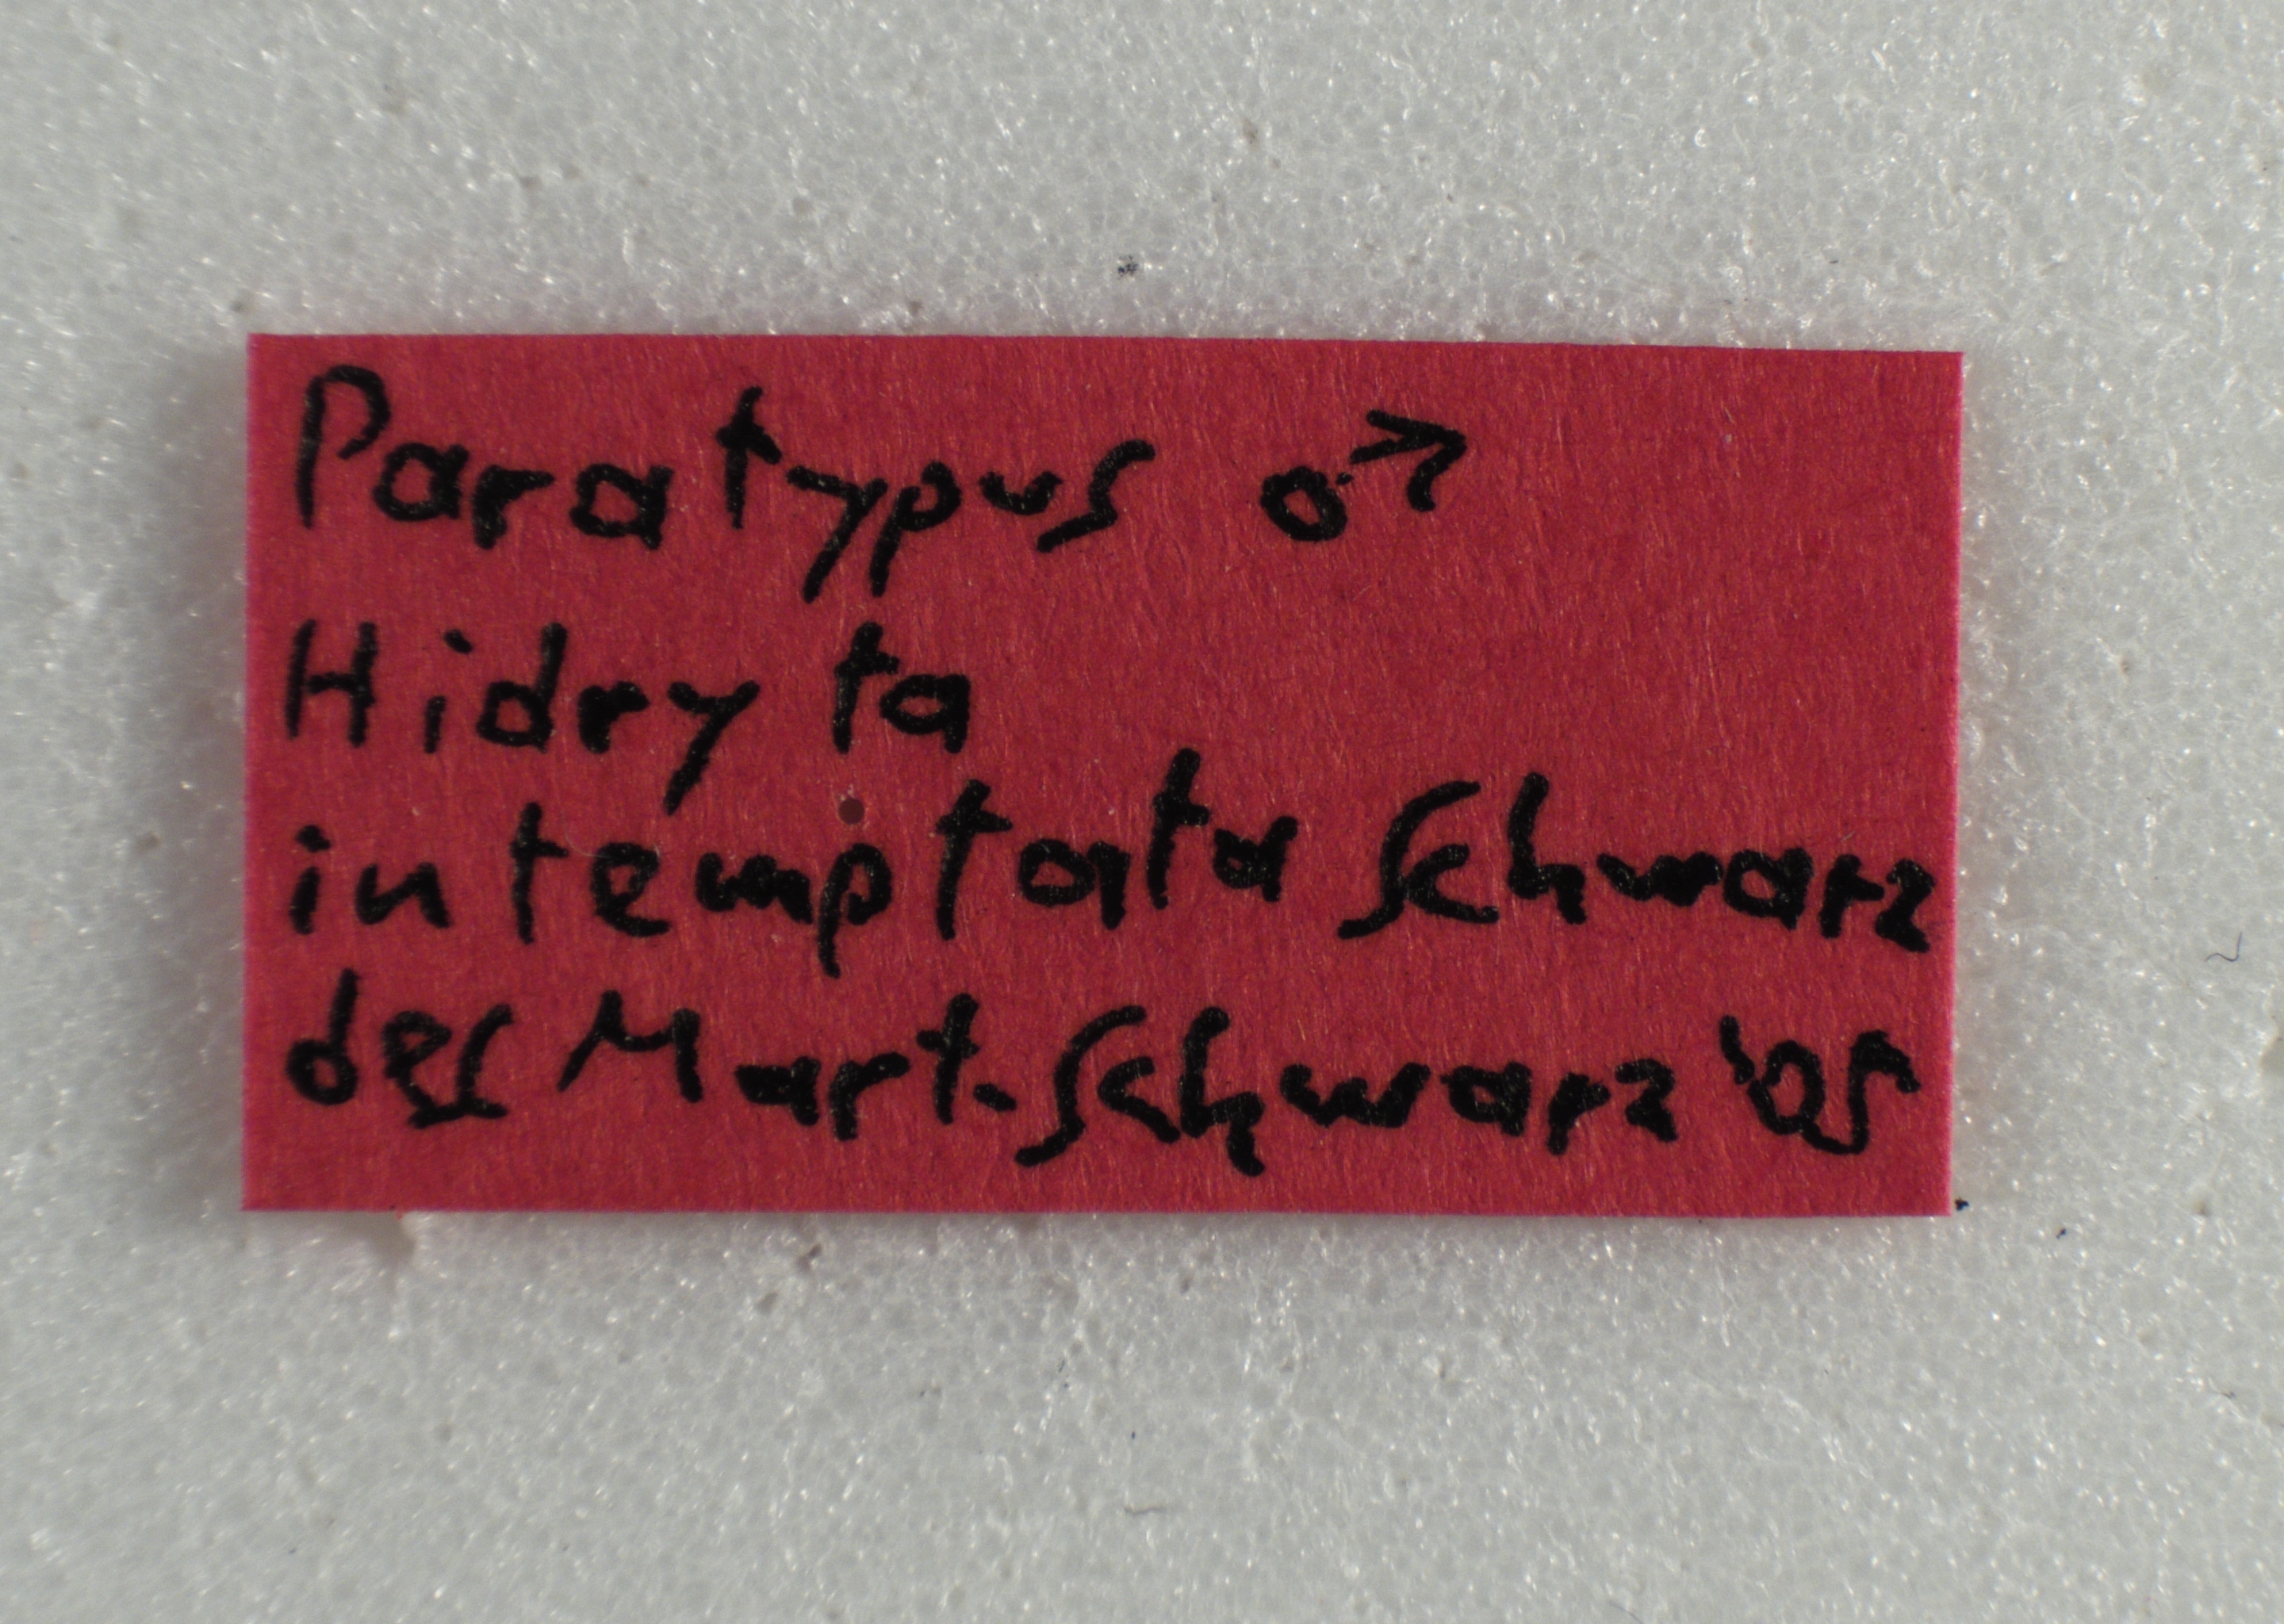 Paratypus ♂
Hidryta
intemptata Schwarz
des Mart. Schwarz '05